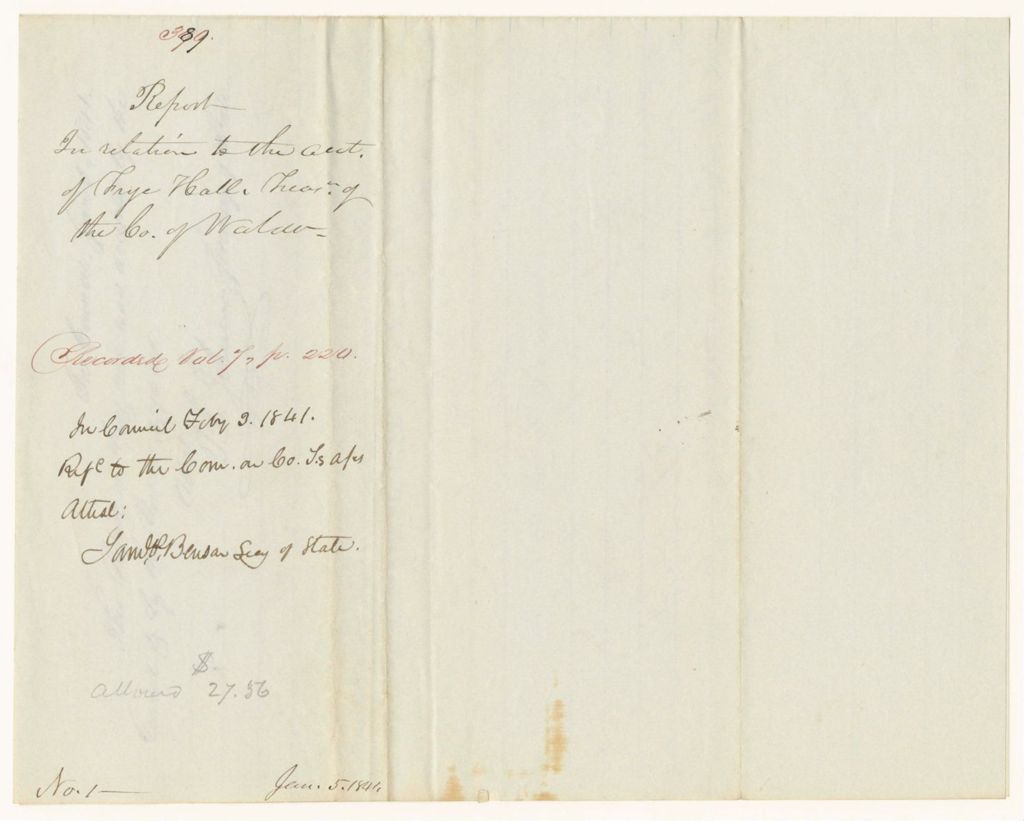 389.
Report
In relation to the acct.
of Frye Hall, Treasr. of
the Co. of Waldo
Recorded Vol. 7, p. 220.
In Council Feby 3. 1841.
Refd to the Com. on Co. Ts a/cs
Attest:
Saml P. Benson Secy of State.
$
Allowed 27.56
No. 1
Jan. 5. 1841